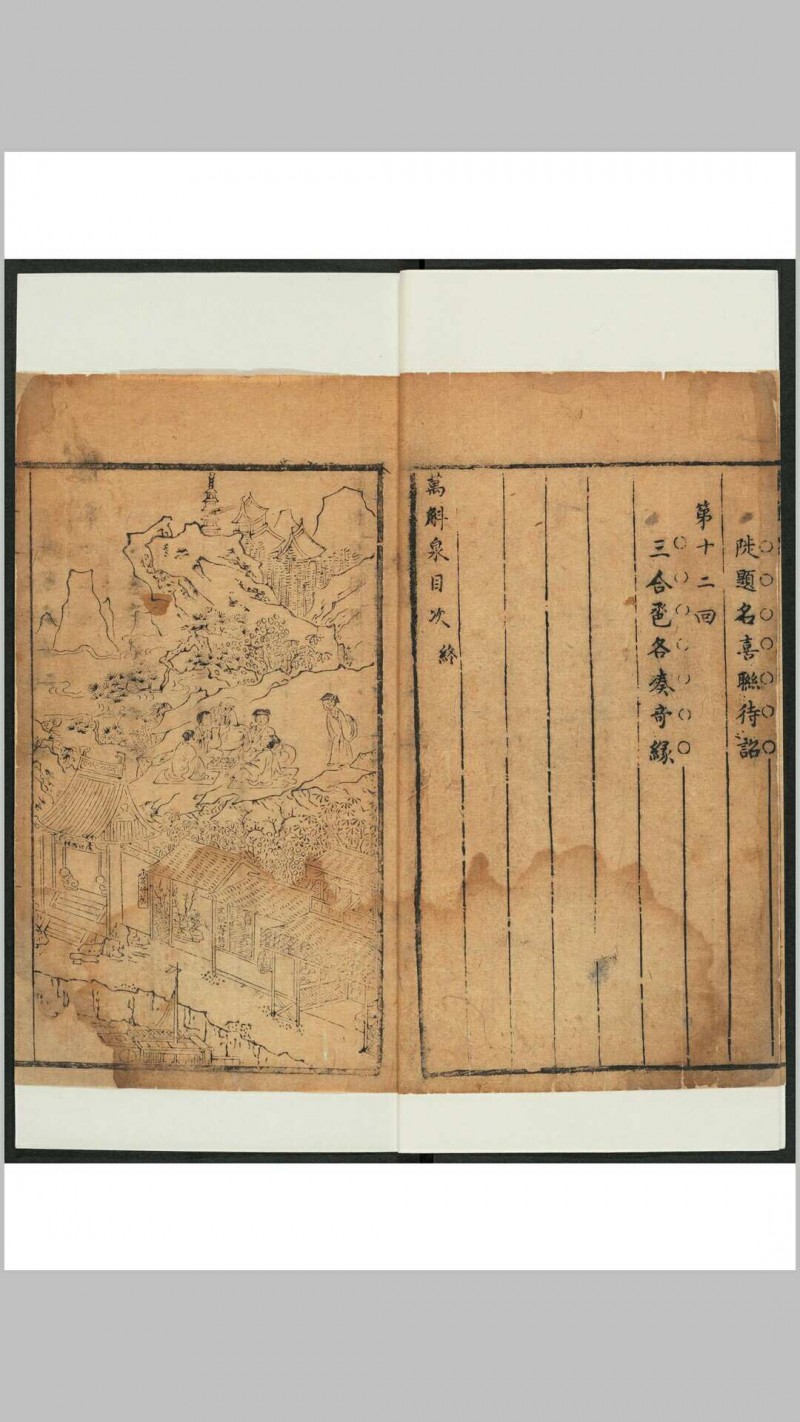 陡題名喜聯待詔
第十二回
三合卺各奏奇緣
萬斛泉目次終